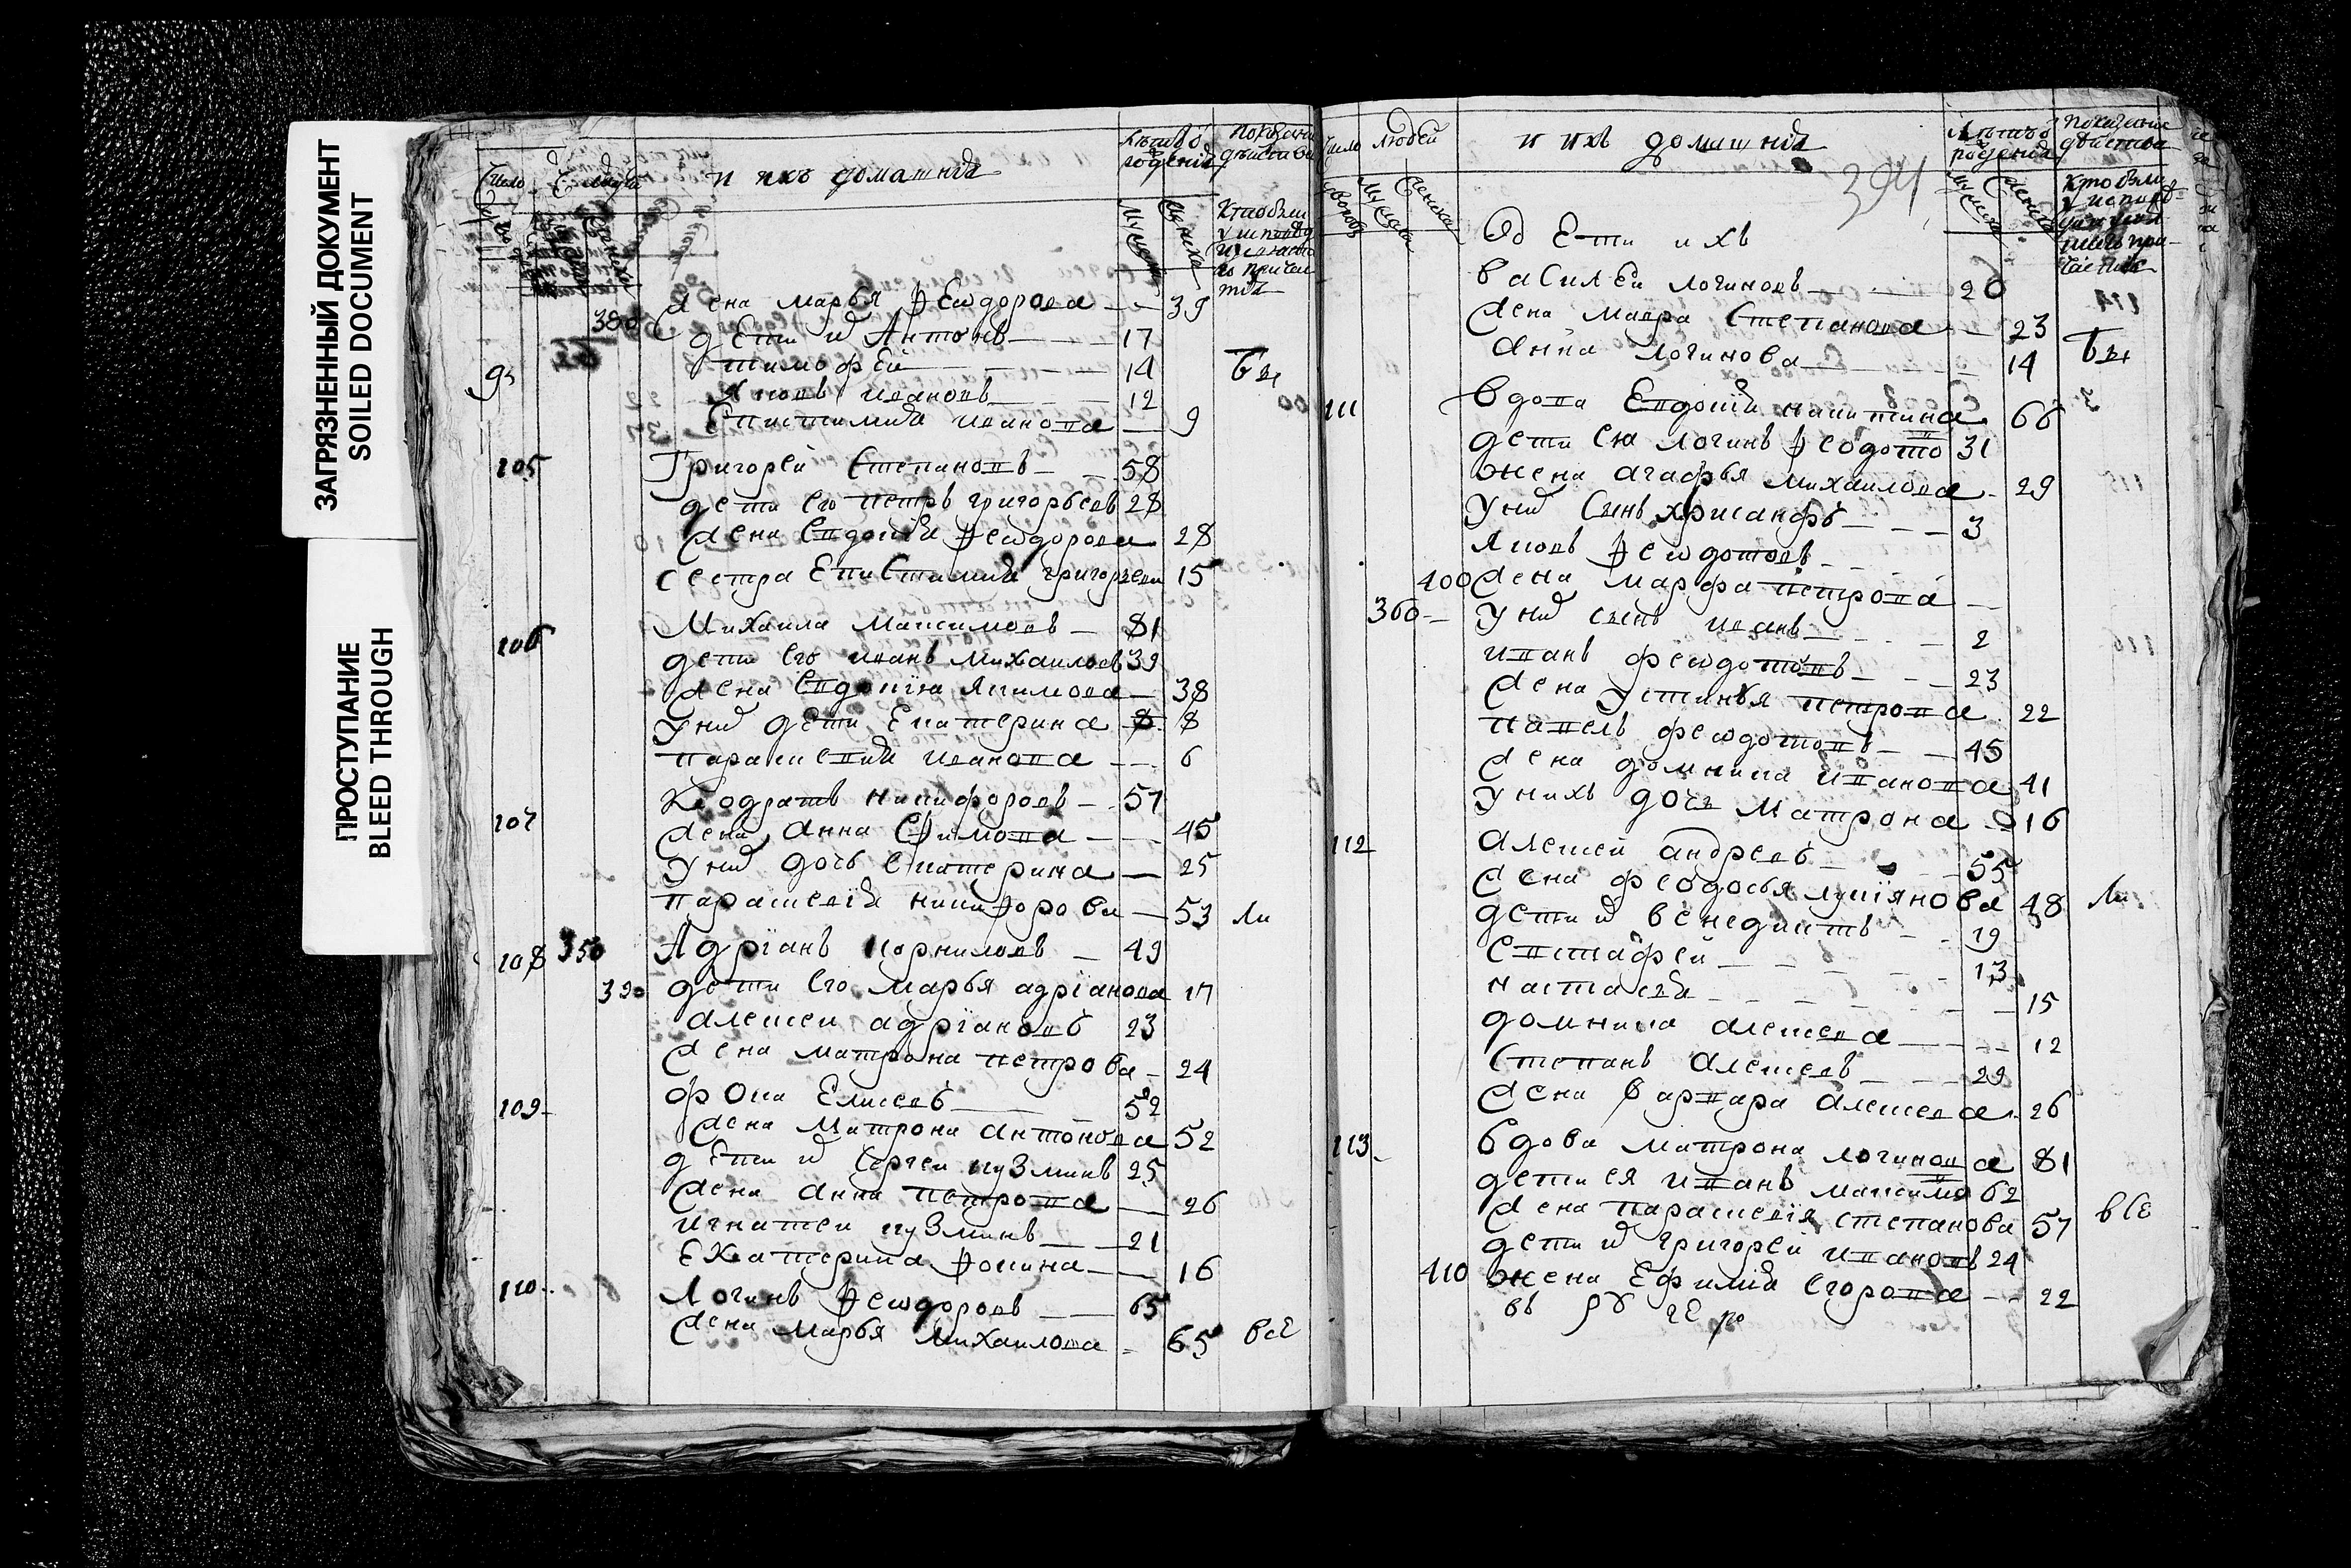 ЗАГРЯЗНЕННЫЙ ДОКУМЕНТ
SOILED DOCUMENT
ПРОСТУПАНИЕ
BLEED THROUGH
и ихъ домашнія
жена марья Ѳеѡдорова 39
380
дети иⷯ Антонъ 17
тимофеи 14
Яковъ ивановъ 12
Епистимиа иванова 9
105 Григореи Степановъ 58
дети его петръ григорьевъ 28
жена Евдокиа Ѳеѡдорова 28
сестра Епистимиа григорьева 15
106 Михаила Максимовъ 81
дети его иванъ михаиловъ 39
жена Евдокиа Якимова 38
У ниⷯ дети Екатерина 8
параскевиа иванова 6
107 Кѡдратъ никифоровъ 57
жена Анна Ефимова 45
У ниⷯ дочь Екатерина 25
параскевиа никифорова 53 Ли
108 350 Адрїанъ корниловъ 49
390 дети его марья адрїанова 17
алексеи адрїановъ 23
жена матрона петрова 24
109 фока Елисеевъ 52
жена Матрона антонова 52
дети иⷯ Сергеи кузминъ 25
жена анна петрова 26
игнатеи кузминъ 21
Екатерина Ѳокина 16
110 Логинъ Ѳеѡдоровъ 65
жена марья михаилова 65 всѣ
людей и ихъ домашнія
394
дети ихъ
василеи логиновъ 20
жена мавра Степанова 23
анна логинова 14
111 вдова Евдокиа никитина 66
дети ея логинъ Ѳедотовъ 31
жена агафья михаилова 29
У ниⷯ сынъ хрисанфъ 3
Яковъ Ѳеѡдотовъ
400 жена марфа петрова
360 У ниⷯ сынъ иванъ 2
иванъ феѡдотовъ 23
жена устинья петрова 22
павелъ феѡдотовъ 45
жена домника иванова 41
У нихъ дочь матрона 16
112 алексей андреевъ 55
жена феодосья лукїянова 48 Ли
дети иⷯ венедиктъ 19
Евстафеи 13
настасья 15
домника алексеева 12
Степанъ алексеевъ 29
жена варвара алексеева 26
113 вдова матрона логинова 81
дети ея иванъ максимовъ 62
жена параскевїя степанова 57 всѣ
дети иⷯ григореи ивановъ 24
410 жена Ефимиа Егорова 22